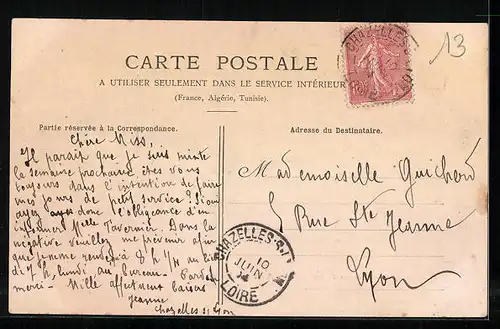 CARTE POSTALE
A UTILISER SEULEMENT DANS LE SERVICE INTÉRIEUR
(France, Algérie, Tunisie).
13
CHAZELLES-S-L
Partie réservée à la Correspondance.
Adresse du Destinataire.
Chère Miss,
Il paraît que je suis mixte
la semaine prochaine êtes vous
toujours dans l'intention de faire
mes jours de petit service? Si oui
ayez donc l'obligeance d'en
informer Melle Tavernier. Dans la
négative veuillez me prévenir afin
que je me rende à 8 h 1/4 au lieu
de 7 h, lundi au bureau. Pardon
merci. Mille affectueux baisers
Jeanne
Chazelles s/ Lyon
Mademoiselle Guichard
5 Rue Ste Jeanne
Lyon
CHAZELLES-S-L
10
JUIN
LOIRE